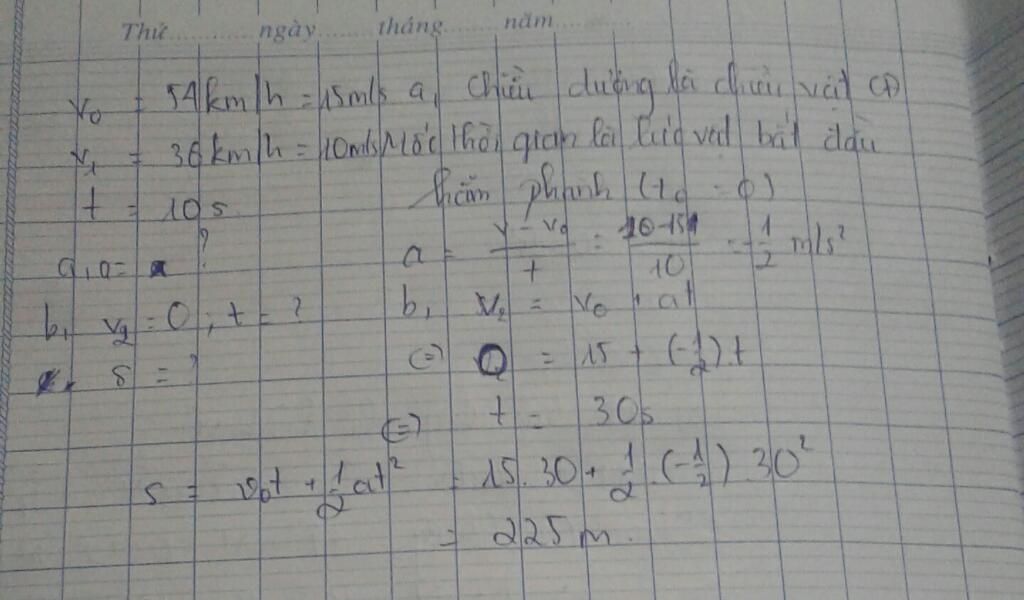 Thứ ngày tháng năm
v₀ = 54 km/h = 15m/s a, Chiều dương là chiều vật CĐ
v₁ = 36 km/h = 10m/s Mốc thời gian là lúc vật bắt đầu
t = 10s hãm phanh (t₀ = 0)
a, a = ? a = v - v₀ / t = 10 - 15 / 10 = -1/2 m/s²
b, v₂ = 0 ; t = ? b, v₂ = v₀ + at
s = ? (=) 0 = 15 + (-1/2).t
(=) t = 30s
s = v₀t + 1/2 at² = 15.30 + 1/2 .(-1/2).30²
= 225 m.